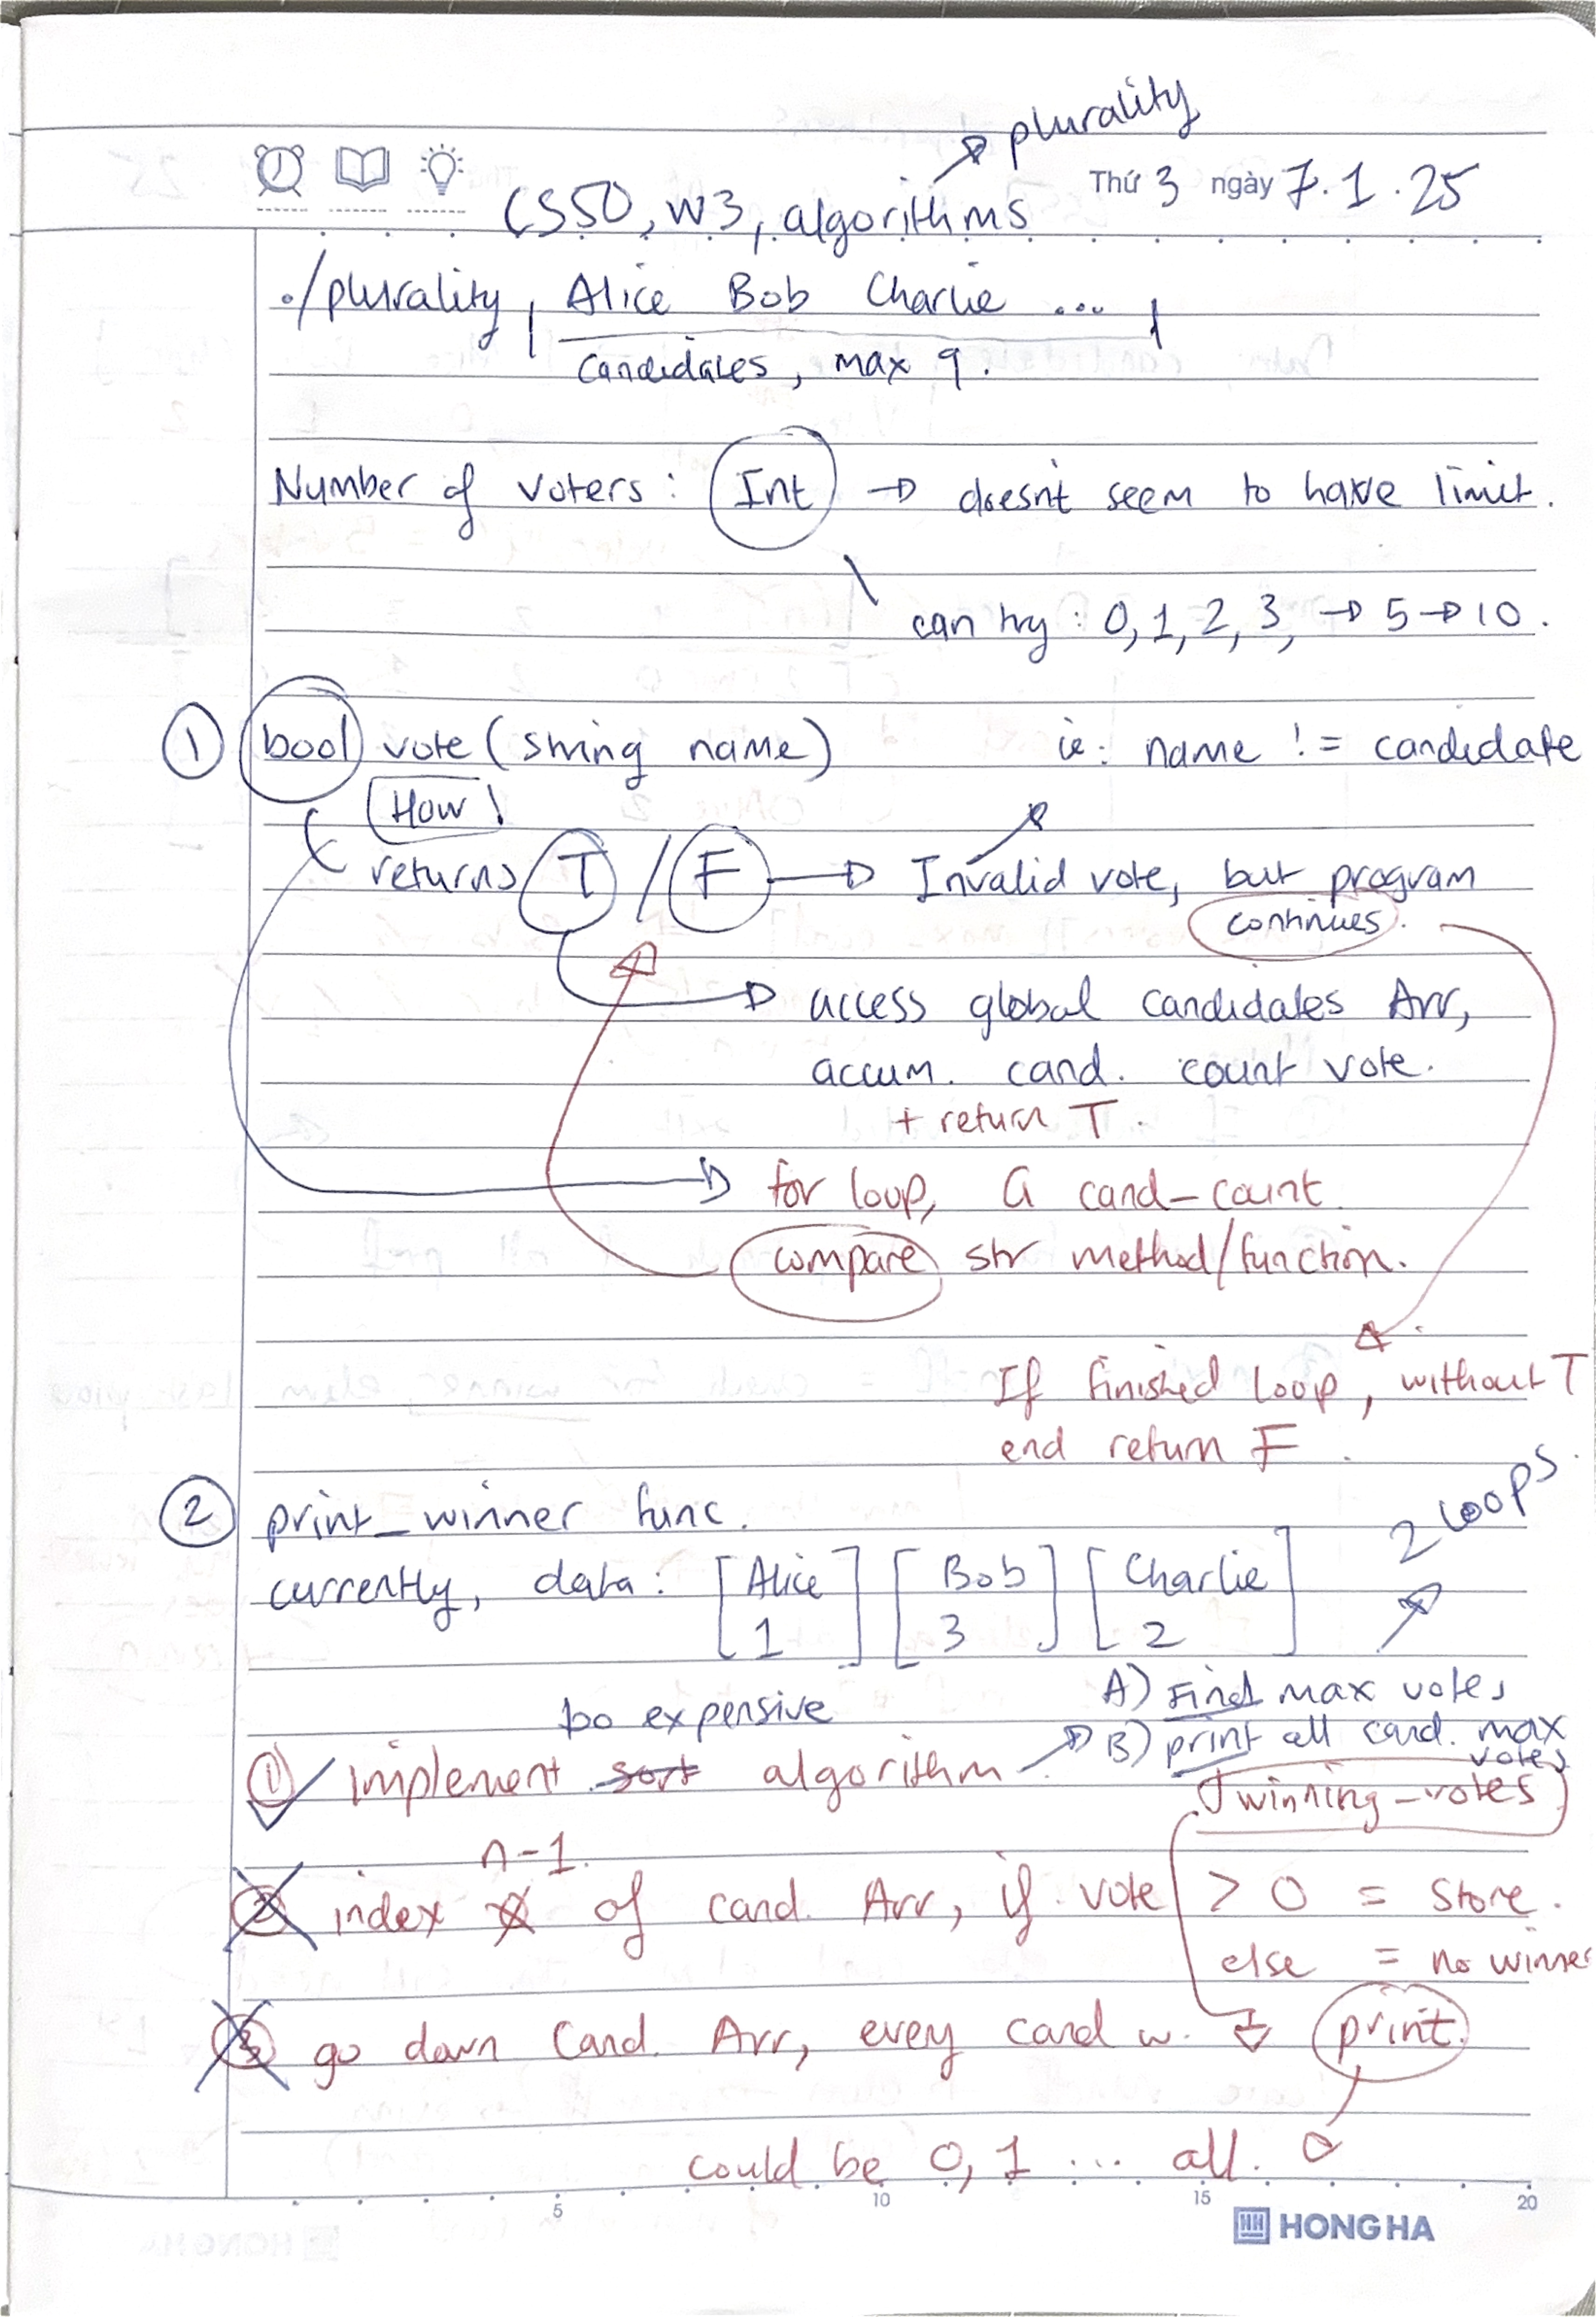 plurality
Thứ 3 ngày 7.1.25
CS50, W3, algorithms
./plurality, Alice Bob Charlie ...
Candidates, max 9.
Number of voters: Int → doesnt seem to have limit.
can try: 0, 1, 2, 3, → 5 → 10.
① bool vote (string name) ie: name != candidate
How!
returns T / F → Invalid vote, but program
continues.
access global candidates Arr,
accum. cand. count vote.
+ return T.
for loop, cand-count
compare str method/function.
If finished loop, without T
end return F.
2 loops.
② print_winner func.
currently, data: [Alice] [Bob] [Charlie]
1 3 2
A) Find max votes
too expensive
B) print all cand. max
votes
① implement sort algorithm
winning-votes
n-1
② index of cand. Arr, if vote > 0 = store.
else = no winner
③ go down Cand. Arr, every cand w. print.
could be 0, 1 ... all.
5 10 15 20
HONG HA